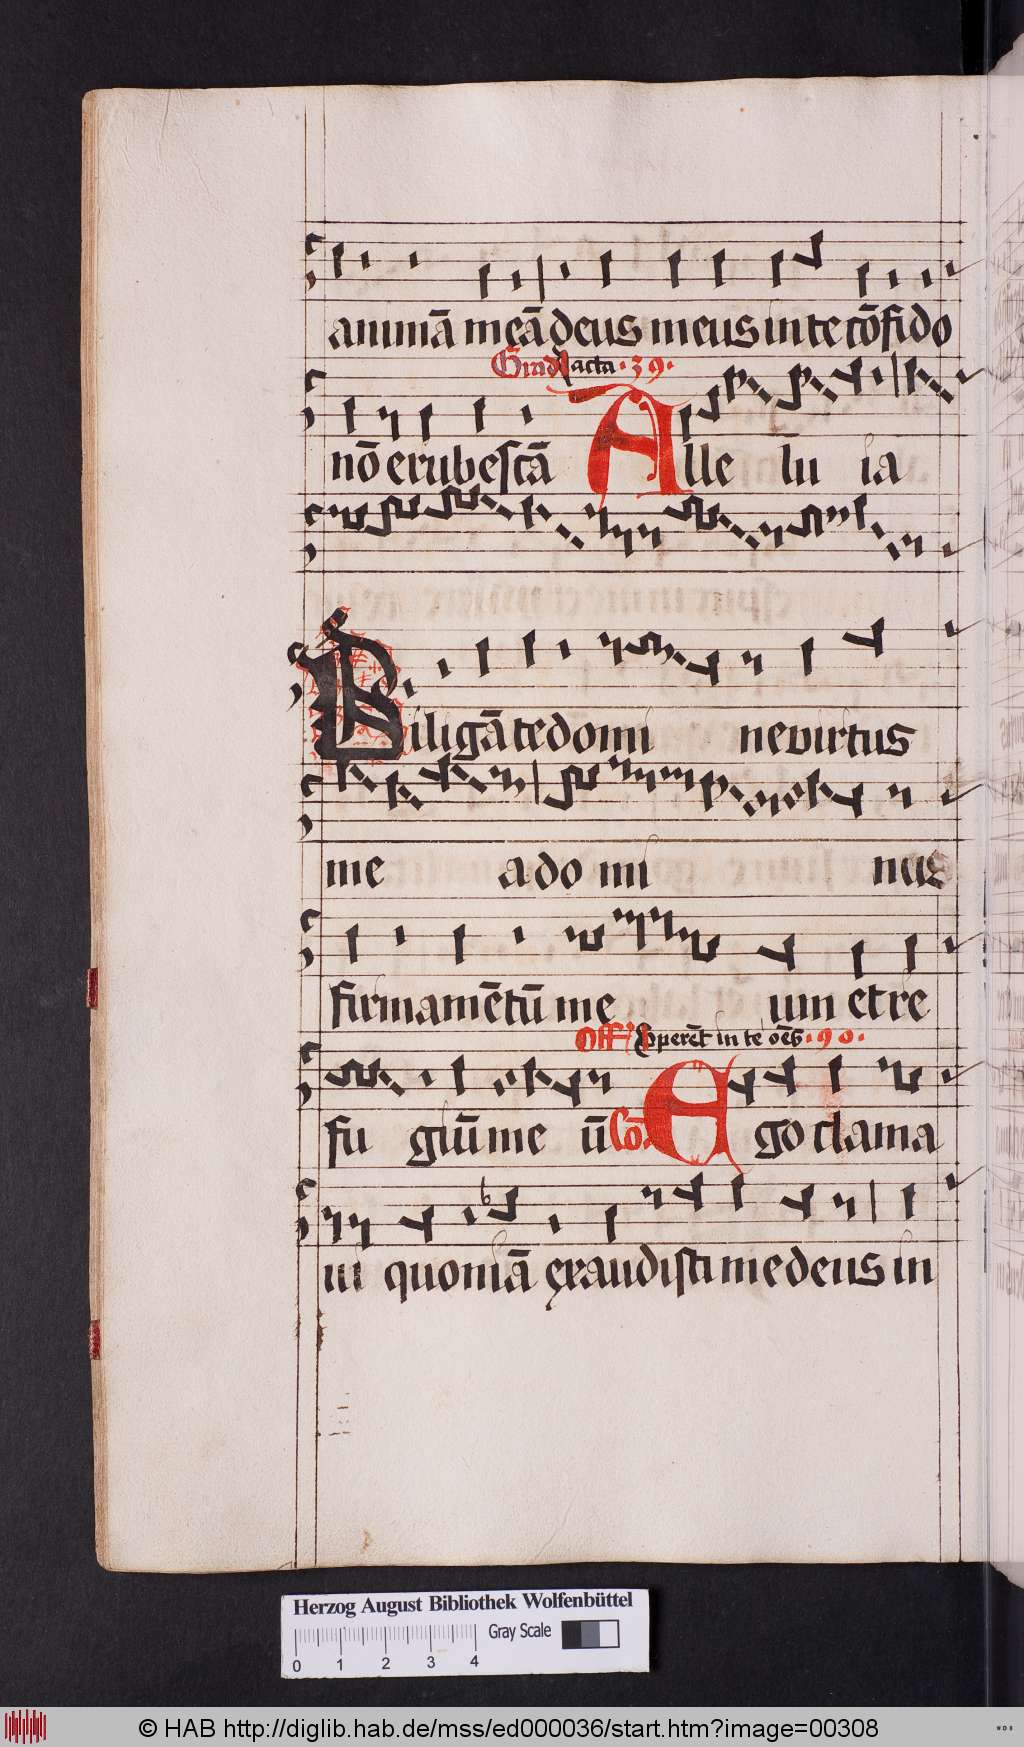 animā meā deus meus in te cōfido
Grad Iacta · 39 ·
nō erubescā Alle lu ia
Diligā te domi ne virtus
me a domi nus
firmamētū me um et re
Off Sperēt in te oēs · 90 ·
fu giū me ū Cō Ego clama
ui quoniā exaudisti me deus in
Herzog August Bibliothek Wolfenbüttel
Gray Scale
0 1 2 3 4
© HAB http://diglib.hab.de/mss/ed000036/start.htm?image=00308